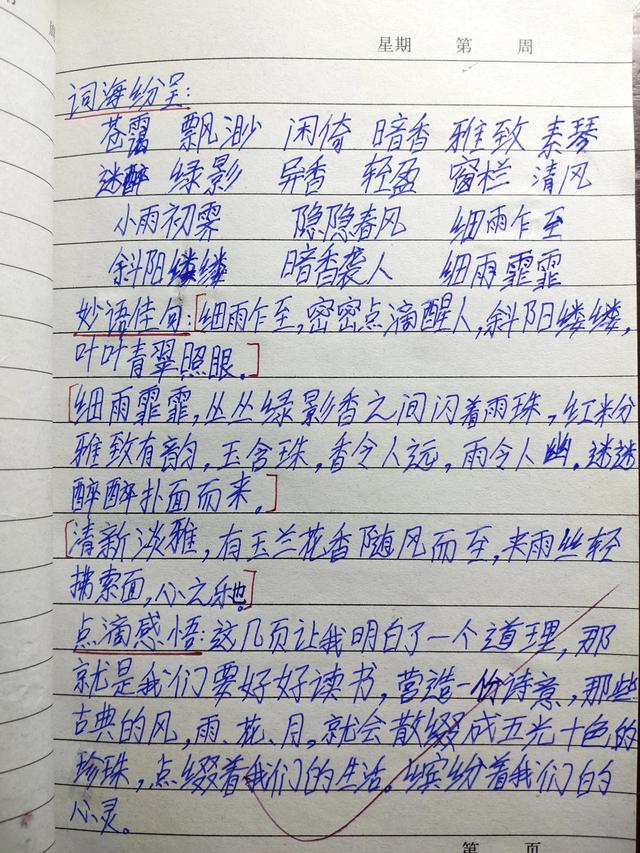 星期 第 周
词海纷呈:
苍霭 飘渺 闲倚 暗香 雅致 素琴
迷醉 绿影 异香 轻盈 窗栏 清风
小雨初霁 隐隐春风 细雨乍至
斜阳缕缕 暗香袭人 细雨霏霏
妙语佳句:[细雨乍至,密密点滴醒人,斜阳缕缕,
叶叶青翠照眼。]
[细雨霏霏,丛丛绿影香之间闪着雨珠,红粉
雅致有韵,玉含珠,香令人远,雨令人幽。迷迷
醉醉扑面而来。]
[清新淡雅,有玉兰花香随风而至,来雨丝轻
拂索面,心之乐也。]
点滴感悟:这几页让我明白了一个道理,那
就是我们要好好读书,营造一份诗意,那些
古典的风,雨、花、月,就会散缀成五光十色的
珍珠,点缀着我们的生活。缤纷着我们的
心灵。
第 页